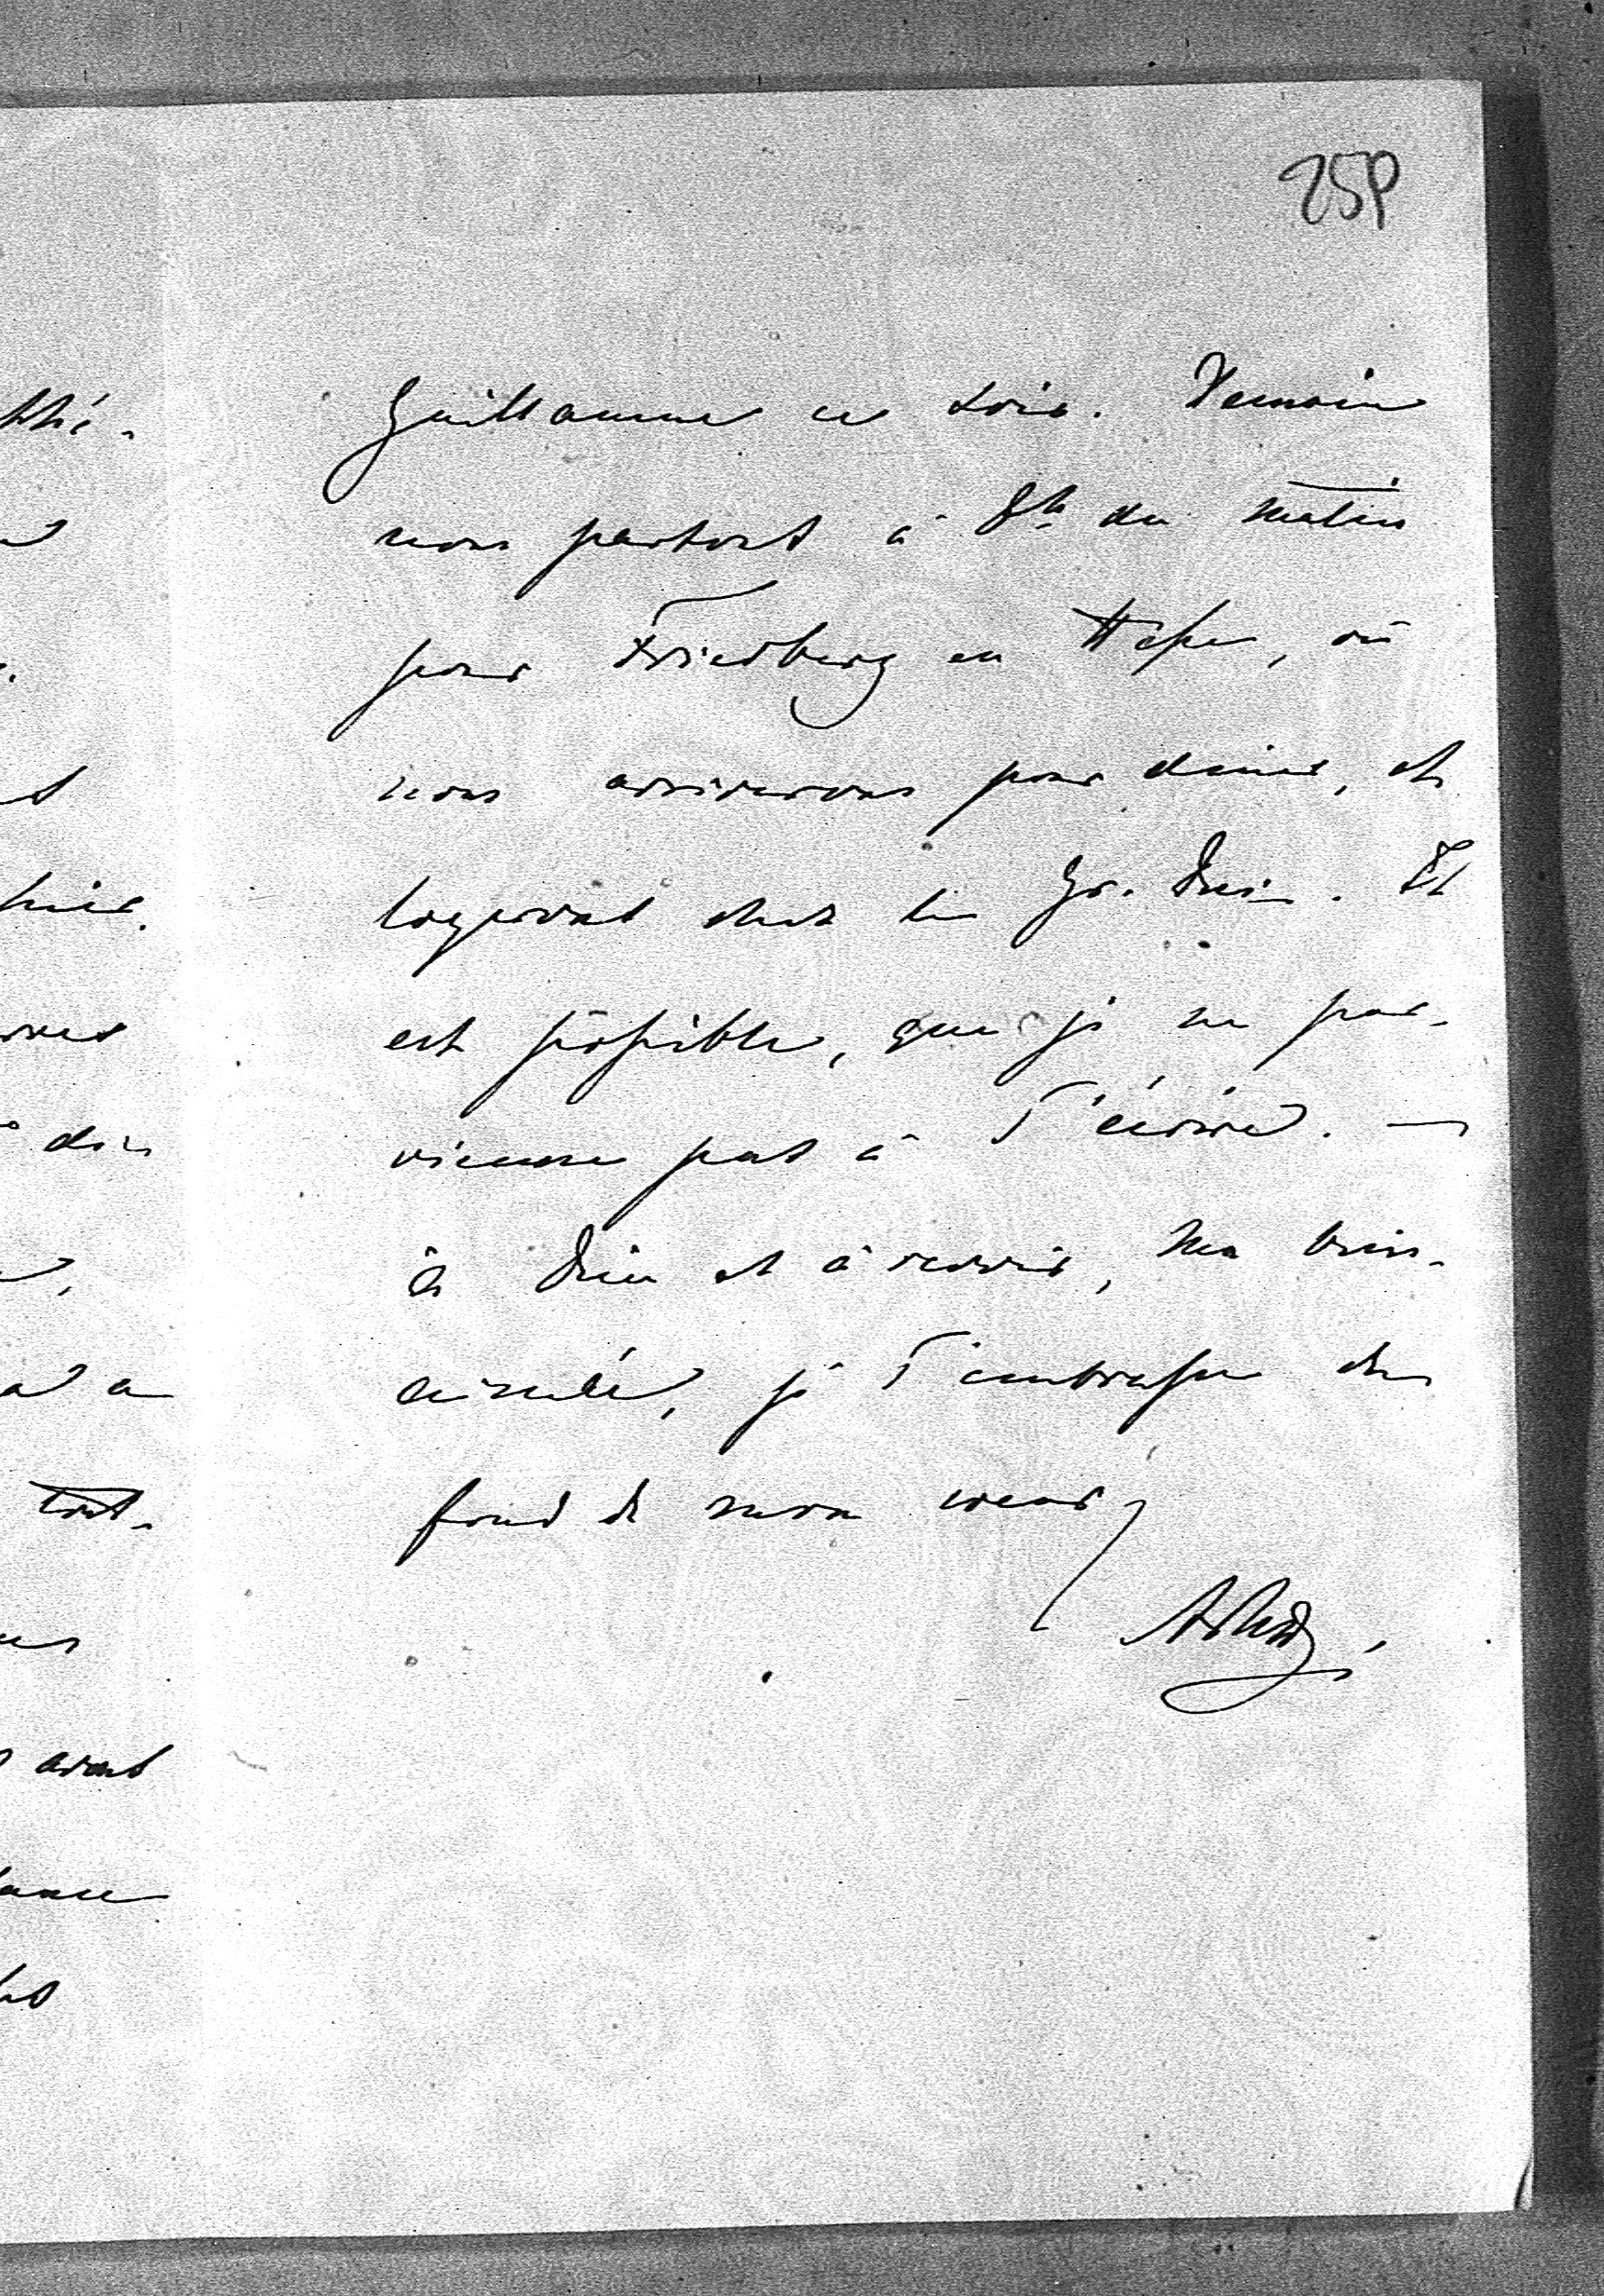 25P
Guillaume ce soir. Demain
nous partons à 8h du matin
pour Friedberg en Hesse, où
nous arriverons pour diner, et
logerons chez le Gr. Duc. Il
est possible, que je ne par-
vienne pas à T'écrire. —
à Dieu et à revoir, ma bien-
aimée, je T'embrasse du
fond de mon coeur,
thé-
tout-
avons